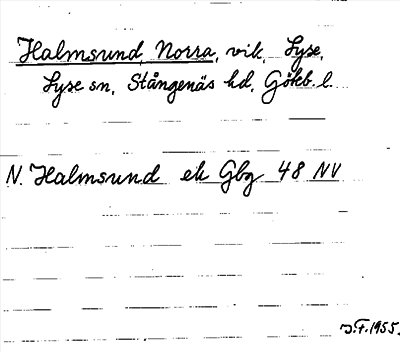 Halmsund, Norra, vik, Lyse,
Lyse sn, Stångenäs hd, Götb. l.
N. Halmsund ek Gbg 48 NV
J.F. 1955.